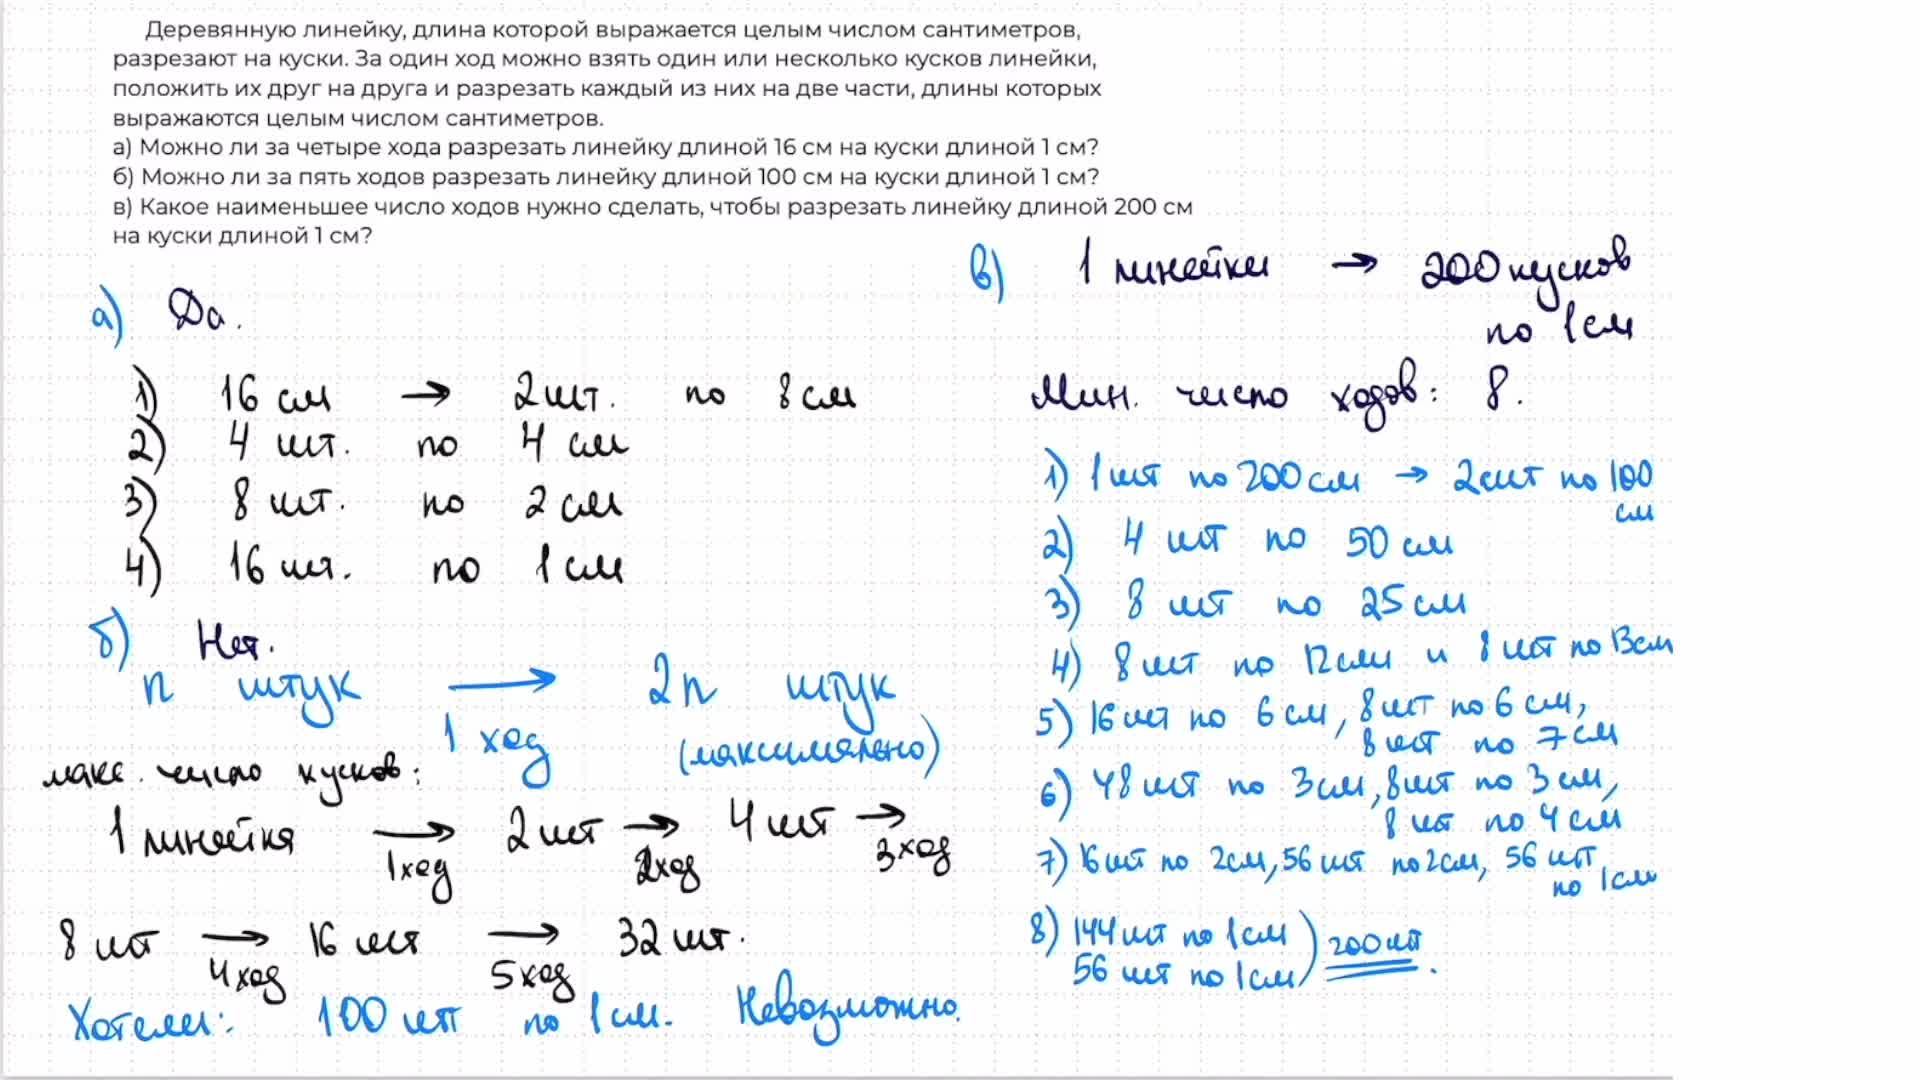 Деревянную линейку, длина которой выражается целым числом сантиметров,
разрезают на куски. За один ход можно взять один или несколько кусков линейки,
положить их друг на друга и разрезать каждый из них на две части, длины которых
выражаются целым числом сантиметров.
а) Можно ли за четыре хода разрезать линейку длиной 16 см на куски длиной 1 см?
б) Можно ли за пять ходов разрезать линейку длиной 100 см на куски длиной 1 см?
в) Какое наименьшее число ходов нужно сделать, чтобы разрезать линейку длиной 200 см
на куски длиной 1 см?
а) Да.
1) 16 см → 2 шт. по 8 см
2) 4 шт. по 4 см
3) 8 шт. по 2 см
4) 16 шт. по 1 см
б) Нет.
n штук → 2n штук
1 ход (максимально)
макс. число кусков:
1 линейка → 2 шт → 4 шт →
1 ход 2 ход 3 ход
8 шт → 16 шт → 32 шт.
4 ход 5 ход
Хотели: 100 шт по 1 см. Невозможно.
в) 1 линейки → 200 кусков
по 1 см
Мин. число ходов: 8.
1) 1 шт по 200 см → 2 шт по 100
см
2) 4 шт по 50 см
3) 8 шт по 25 см
4) 8 шт по 12 см и 8 шт по 13 см
5) 16 шт по 6 см, 8 шт по 6 см,
8 шт по 7 см
6) 48 шт по 3 см, 8 шт по 3 см,
8 шт по 4 см
7) 16 шт по 2 см, 56 шт по 2 см, 56 шт
по 1 см
8) 144 шт по 1 см
56 шт по 1 см) 200 шт.